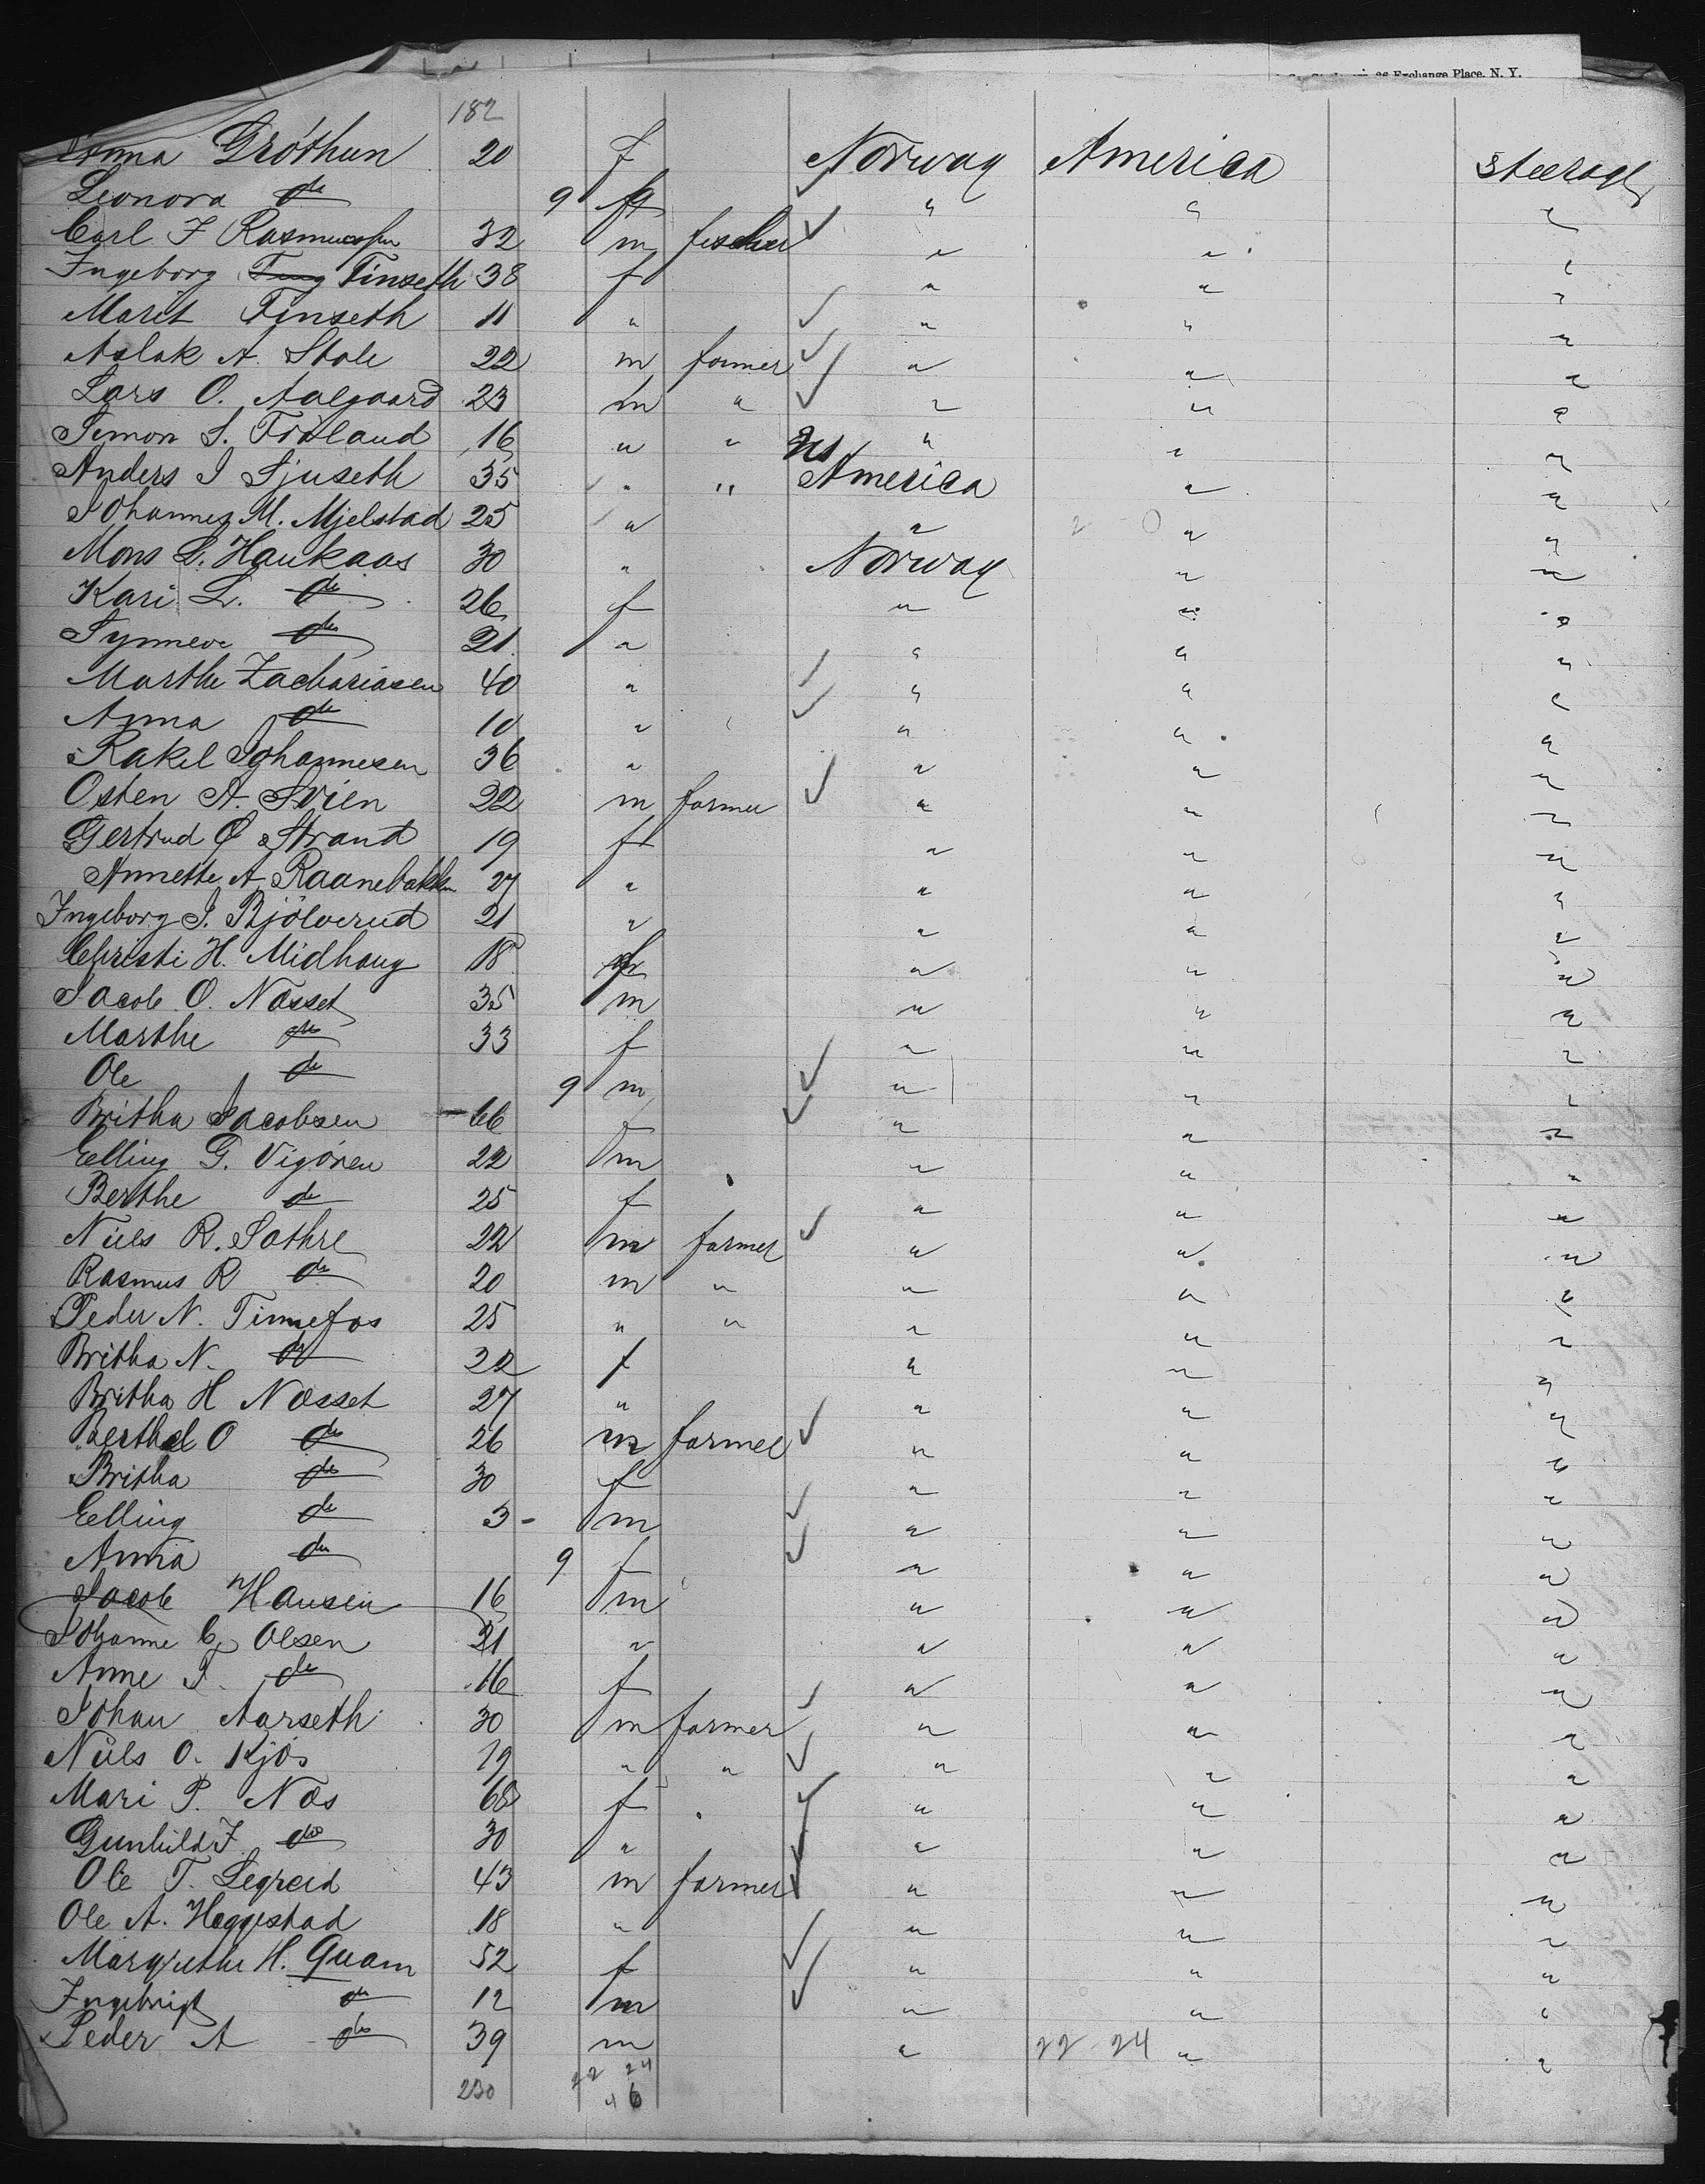 Exchange Place, N. Y.
182
Anna Gróthun 20 f Norway America Steerage
Leonora do 9 f " " "
Carl F Rasmussen 32 m fischer " " "
Ingeborg Tinseth 38 f " " "
Marit Finseth 11 " " " "
Aslak A. Stole 22 m farmer " " "
Lars O. Aalgaard 23 m " " " "
Simon S. Fröland 16 " " " " "
Anders I Sjuseth 35 " " US America " "
Johannes M. Mjelstad 25 " " " "
Mons L. Haukaas 30 " Norway " "
Kari L. do 26 f " " "
Synneve do 21 " " " "
Marthe Zachariasen 40 " " " "
Anna do 10 " " " "
Rakel Johannesen 36 " " " "
Osten A. Svien 22 m farmer " " "
Gertrud O Strand 19 f " " "
Annette A Raanebakken 27 " " " "
Ingeborg I. Bjölverud 21 " " " "
Christi H. Midhaug 18 f " " "
Jacob O. Næsset 35 m " " "
Marthe do 33 f " " "
Ole do 9 m " " "
Britha Jacobsen 66 f " " "
Elling G. Vigören 22 m " " "
Berthe do 25 f " " "
Niels R. Sathre 22 m farmer " " "
Rasmus R do 20 m " " " "
Peder N. Tinnefos 25 " " " " "
Britha N. do 22 f " " "
Britha H Næsset 27 " " " "
Berthel O do 26 m farmer " " "
Britha do 30 f " " "
Elling do 3 - m " " "
Anna do 9 f " " "
Jacob Hansen 16 m " " "
Johanne C. Olsen 21 " " " "
Anne T. do 16 f " " "
Johan Aarseth 30 m farmer " " "
Nils O. Kjös 19 " " " " "
Mari P. Næs 68 f " " "
Gunhild J. do 30 " " " "
Ole T. Legreid 43 m farmer " " "
Ole A. Heggestad 18 " " " "
Margrethe H. Quam 52 f " " "
Ingebrigt do 12 m " " "
Peder A do 39 m " 22 24 " "
22 24
230 46